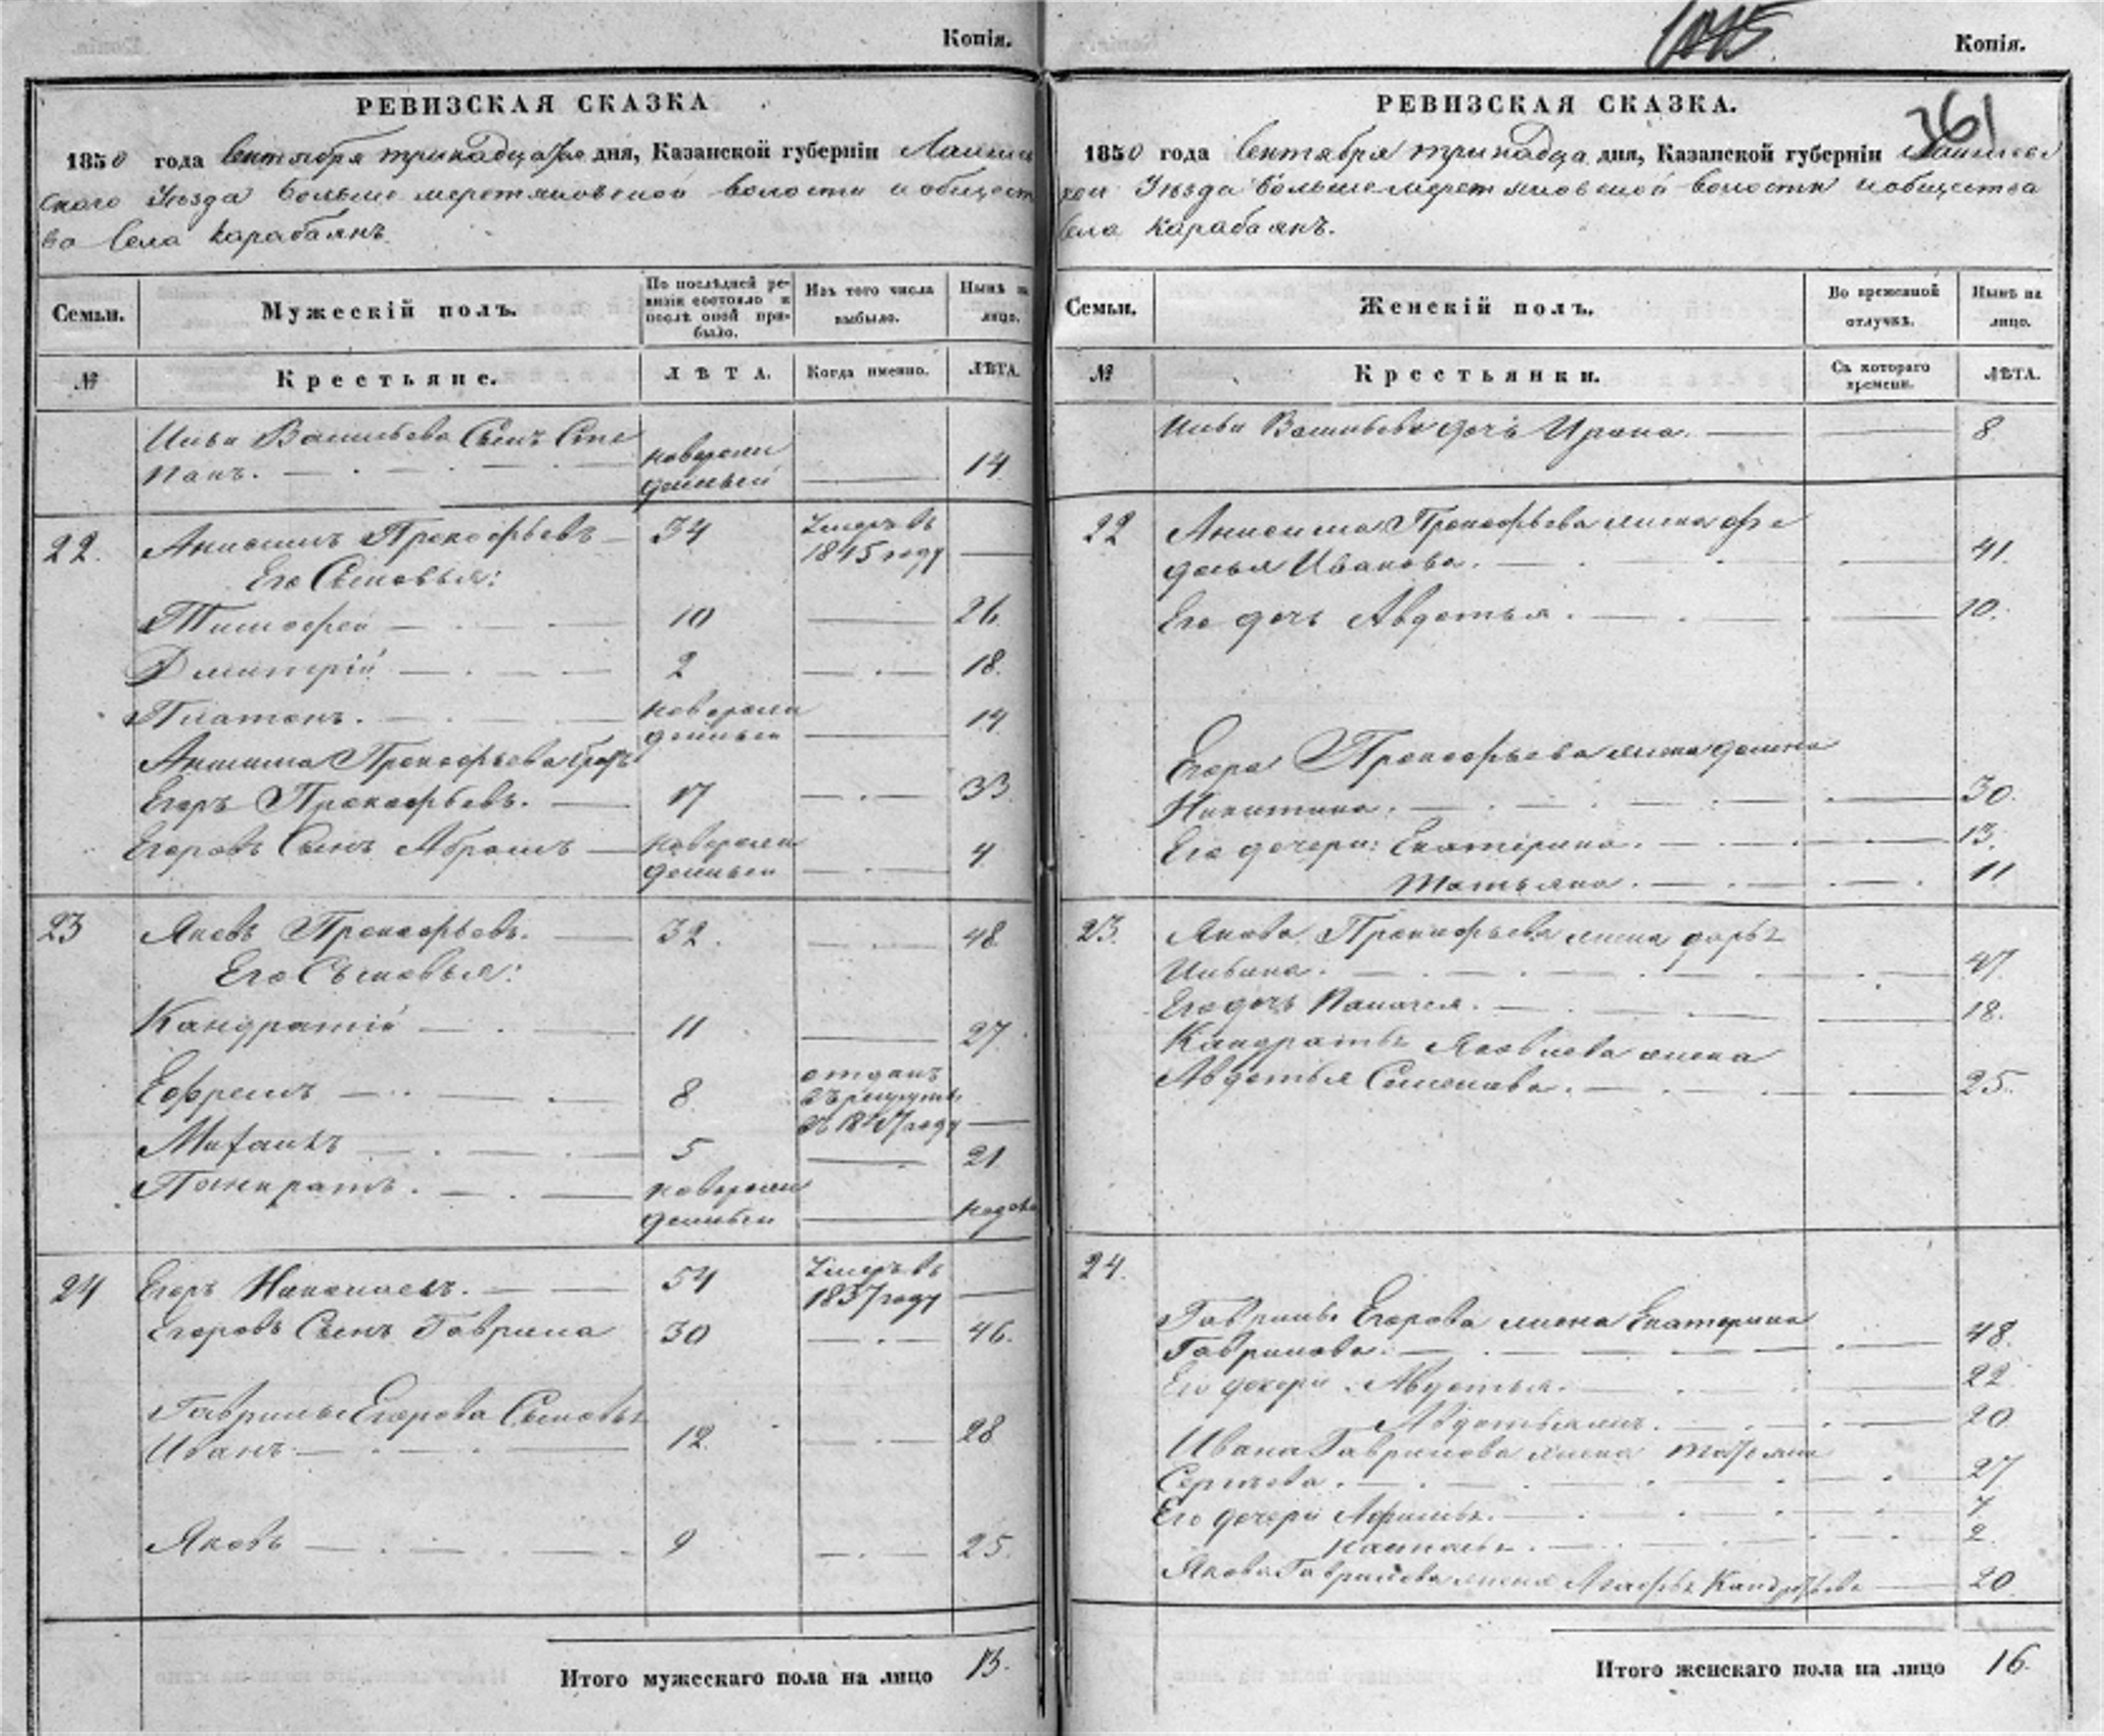 Копія.
РЕВИЗСКАЯ СКАЗКА
1850 года Сентября тринадцатого дня, Казанской губерніи Лаише
скаго Уезда больше меретяковской волости и общест
ва Села Карабаянъ
Семьи.
Мужескій полъ.
По послѣдней ре-
визіи состояло и
послѣ оной при-
было.
Изъ того числа
выбыло.
Нынѣ на
лицо.
№
Крестьяне.
ЛѢТА.
Когда именно.
ЛѢТА.
Ильи Васильева Сынъ Сте
панъ. новорож
денный 14
22. Анисимъ Прокофьевъ 34 Умеръ въ
1845 году
Его Сыновья:
Тимофей 10 26.
Дмитрій 2 18.
Платонъ. новорож
денный 14
Анисима Прокофьева братъ
Егоръ Прокофьевъ. 17 33
Егоровъ Сынъ Абрамъ новорож
денный 4
23 Яковъ Прокофьевъ. 32. 48
Его Сыновья:
Кандратій 11 27
Ефремъ 8 отданъ
въ рекруты
въ 1847 году
Михаилъ 5 21
Панкратъ. новорож
денный
24 Егоръ Николаевъ. 54 Умеръ въ
1837 году
Егоровъ Сынъ Гаврила 30 46.
Гаврилы Егорова Сыновья
Иванъ 12. 28
Яковъ 9 25.
Итого мужескаго пола на лицо 13.
Копія.
361
РЕВИЗСКАЯ СКАЗКА.
1850 года Сентября тринадца дня, Казанской губерніи Лаишев
Уезда больше меретяковской волости и общества
села Карабаянъ.
Семьи.
Женскій полъ.
Во временной
отлучкѣ.
Нынѣ на
лицо.
№
Крестьянки.
Съ котораго
времени.
ЛѢТА.
Ильи Васильева дочь Ирина. 8
22 Анисима Прокофьева жена Фе
досья Иванова. 41.
Его дочь Авдотья. 10.
Егора Прокофьева жена
Никитина. 30.
Его дочери: Екатерина. 13.
Татьяна. 11
23. Якова Прокофьева жена Дарья
Ильина. 47
Его дочь Палагея. 18.
Кандратья Яковлева жена
Авдотья Семенова. 25.
24.
Гаврилы Егорова жена Екатерина
Гаврилова. 48.
Его дочери Авдотья. 22
20
Ивана Гаврилова жена Татьяна
Сергеева. 27
Его дочери 7
2
Якова Гаврилова жена Агафья Кандратьева 20
Итого женскаго пола на лицо 16.